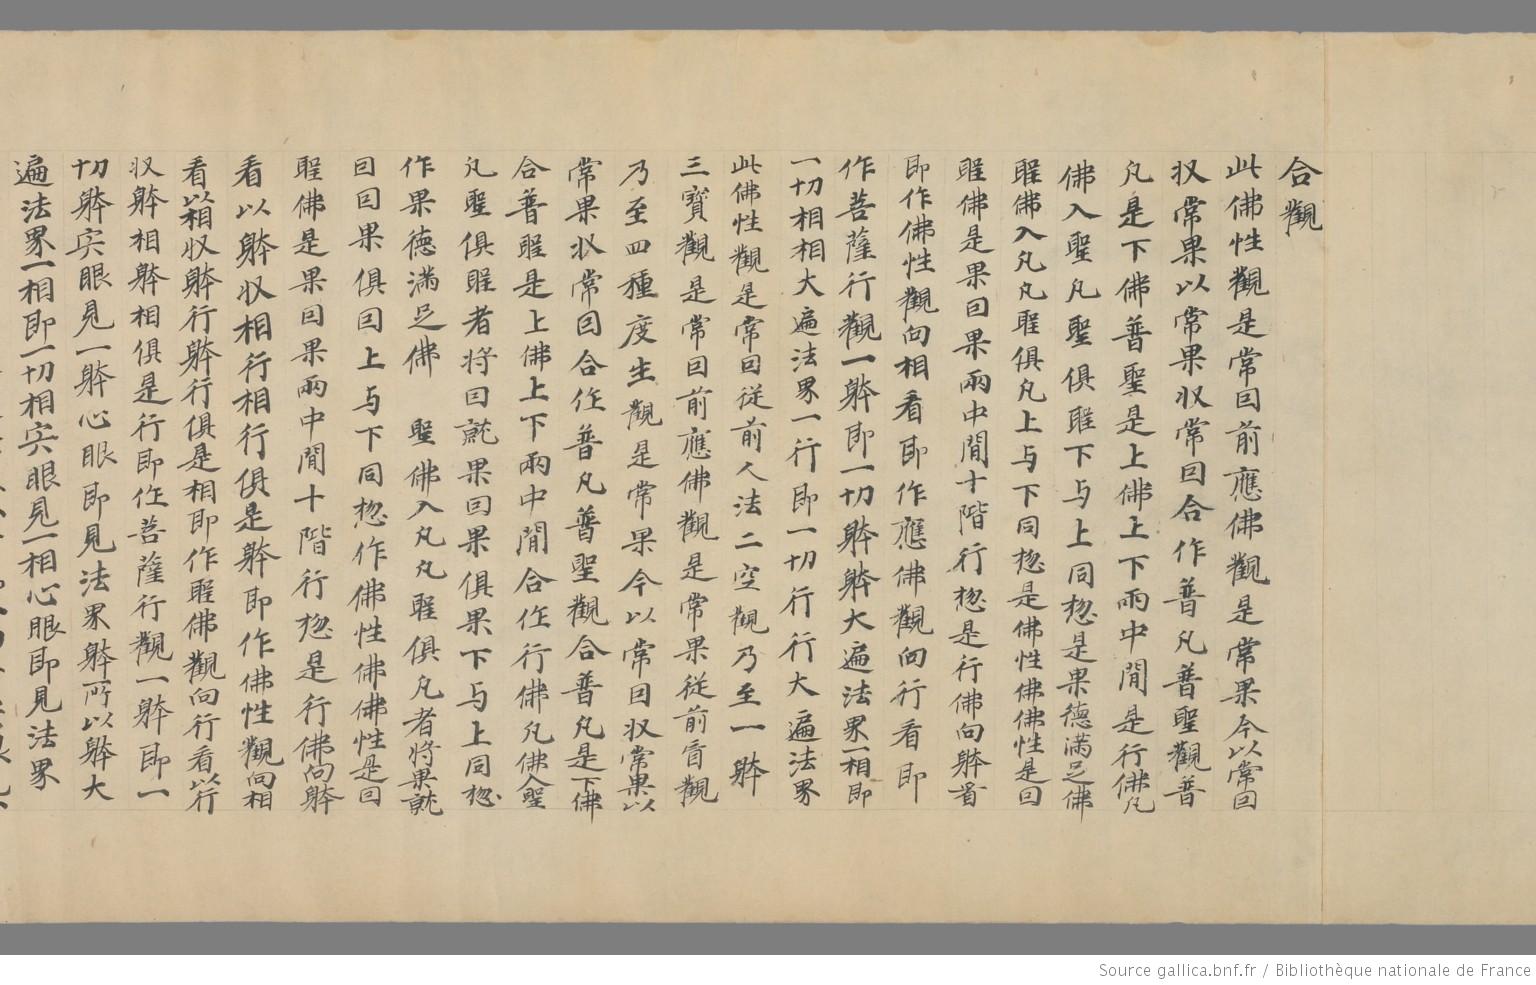 合觀
此佛性觀是常囙前應佛觀是常果今以常囙
収常果以常果収常囙合作普凡普聖觀普
凡是下佛普聖是上佛上下兩中閒是行佛凡
佛入聖凡聖俱 下与上同惣是果德滿足佛
佛入凡凡 俱凡上与下同惣是佛性佛佛性是囙
佛是果囙果兩中閒十階行惣是行佛向躰
即作佛性觀向相看即作應佛觀向行看即
作菩薩行觀一躰即一切躰躰大遍法界一相即
一切相相大遍法界一行即一切行行大遍法界
此佛性觀是常囙從前人法二空觀乃至一躰
三寶觀是常囙前應佛觀是常果從前盲觀
乃至四種度生觀是常果今以常囙収常果以
常果収常囙合作普凡普聖觀合普凡是下佛
合普 是上佛上下兩中閒合作行佛凡佛入聖
凡聖俱 者將囙就果囙果俱果下与上同惣
作果德滿足佛 聖佛入凡凡 俱凡者將果就
囙囙果俱囙上与下同惣作佛性佛佛性是囙
佛是果囙果兩中閒十階行惣是行佛向躰
看以躰収相行相行俱是躰即作佛性觀向相
看以相収躰行躰行俱是相即作 佛觀向行看以行
収躰相躰相俱是行即作菩薩行觀一躰即一
切躰 眼見一躰心眼即見法界躰所以躰大
遍法界一相即一切相 眼見一相心眼即見法界
Source gallica.bnf.fr / Bibliothèque nationale de France